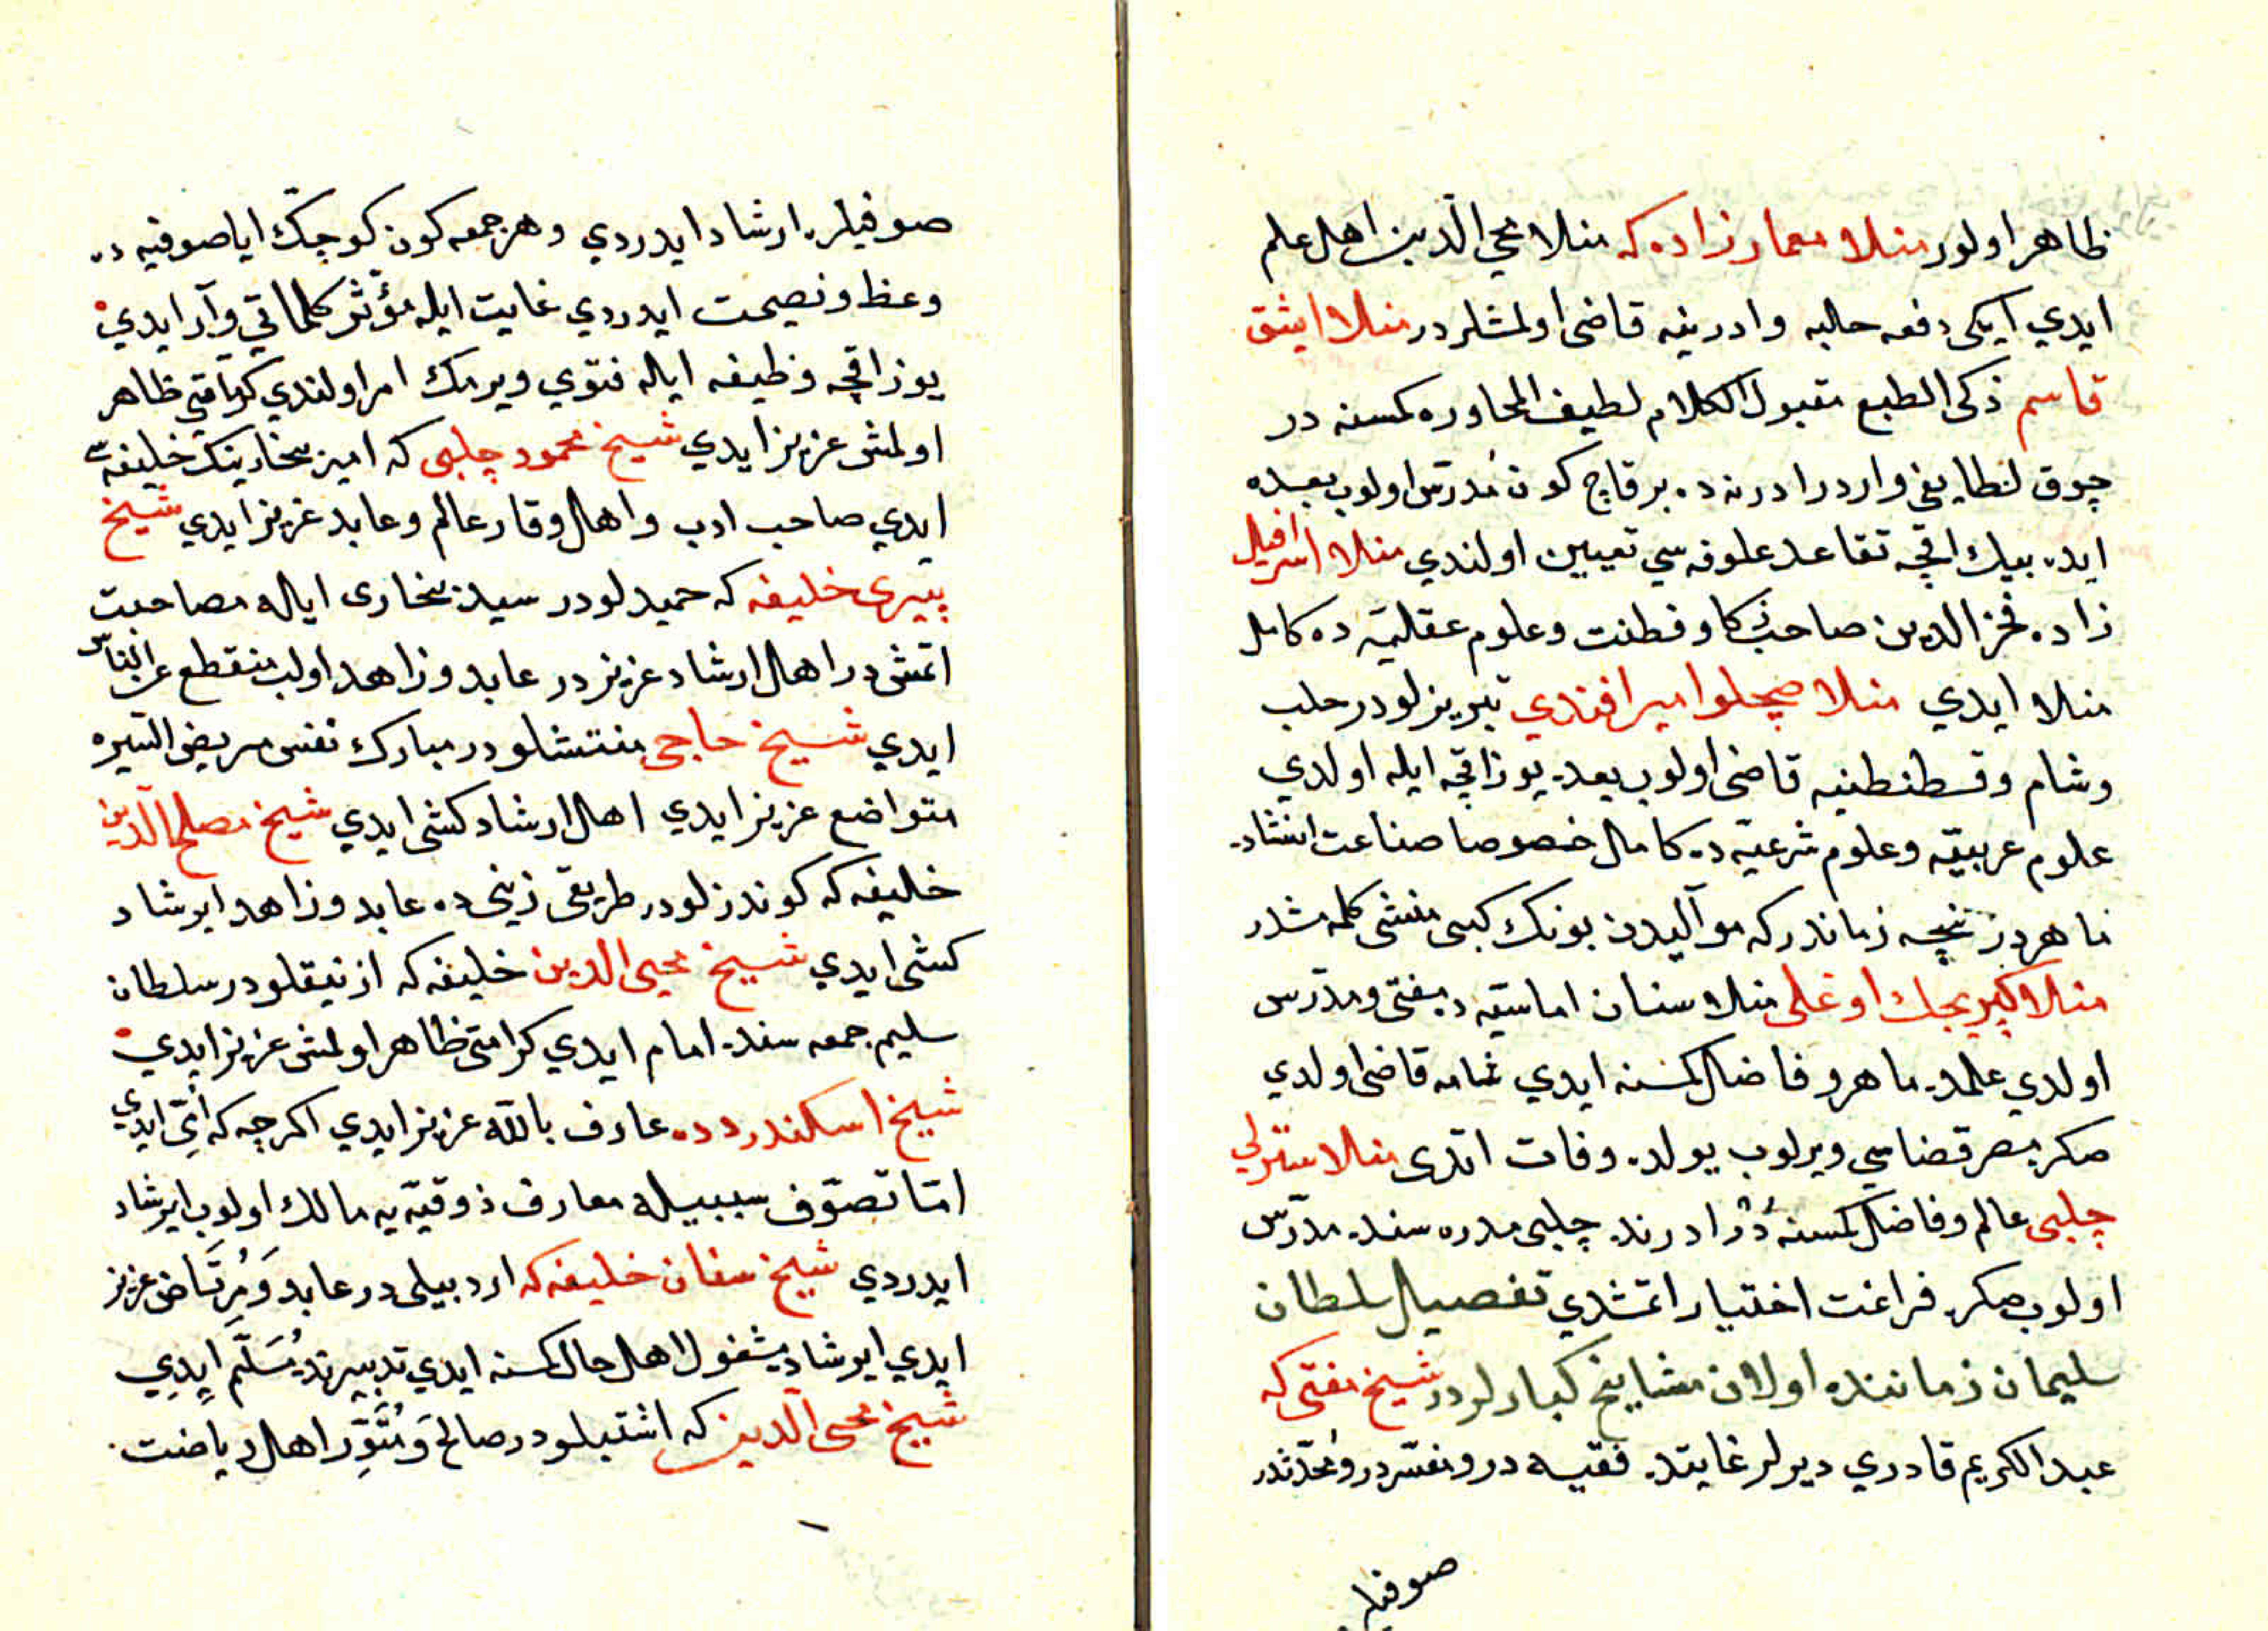 ظاهر اولور منلا معمار زاده كه منلا محيي الدين اهل علم
ايدي ايكى دفعه حلبه وادرنيه قاضى اولمشلردر منلا ايشق
قاسم ذكى الطبع مقبول الكلام لطيف المحاوره كمسنه در
چوق لطايفى واردر ادرنه ده برقاچ كون مدرس اولوب بعده
ايده بيك اقچه تقاعد علوفه سي تعيين اولندي منلا اسرافيل
زاده فخر الدين صاحب ذكا وفطنت وعلوم عقليه ده كامل
منلا ايدي منلا صچلو امير افندي تبريزلودر حلب
وشام وقسطنطنيه قاضى اولوب بعده يوز اقچه ايله اولدي
علوم عربيّه وعلوم شرعيّه ده كامل خصوصا صناعت انشاده
ماهردر نيچه زماندر كه مواليدن بونك كبى منشى كلمه مشدر
منلا كپريجك اوغلى منلا سنان اماسيّه ده مفتى ومدرّس
اولدي علمده ماهر وفاضل كمسنه ايدي شامه قاضى اولدي
صكره مصر قضاسي ويرلوب يولده وفات اتدى منلا
چلبى عالم وفاضل كمسنه در ادرنده چلبى مدره سنده مدرّس
اولوب صكره فراغت اختيار اتمشدي تفصيل سلطان
سليمان زماننده اولان مشايخ كبارلردر شيخ مفتى كه
عبد الكريم قادري ديرلر غايتده فقيه در ومفسّردر ومحدّثدر
صوفيلر
صوفيلره ارشاد ايدردي وهر جمعه كون كوچك اياصوفيه ده
وعظ ونصيحت ايدردي غايت ايله مؤثر كلماتي وآر ايدي
يوز اقچه وظيفه ايله فتوي ويرمك امر اولندي كراماتي ظاهر
اولمش عزيز ايدي شيخ محمود چلبى كه امير بخارينك خليفه سى
ايدي صاحب ادب واهل وقار عالم وعابد عزيز ايدي شيخ
پيرى خليفه كه حميدلودر سيد بخارى ايله مصاحبت
اتمشدر اهل ارشاد عزيزدر عابد وزاهد اولب منقطع عن الناس
ايدي شيخ حاجى منتشلودر مبارك نفس مريض السيره
متواضع عزيز ايدي اهل ارشاد كشى ايدي شيخ مصلح الدين
خليفه كه كوندزلودر طريق زينى ده عابد وزاهد ايرشاد
كشى ايدي شيخ محيى الدين خليفه كه ازنيقلودر سلطان
سليم جمعه سنده امام ايدي كرامتى ظاهر اولمش عزيز ايدي
شيخ اسكندر دده عارف بالله عزيز ايدي اكرچه كه اُمّى ايدي
امّا تصوّف سببيله معارف ذوقيّه يه مالك اولوب ايرشاد
ايدردي شيخ سنان خليفه كه اردبيلى در عابد وَمُرتَاض عزيز
ايدي ايرشاده مشغول اهل حال كمسنه ايدي تدبيرنده مُسَلَّم اِيدِي
شيخ محى الدين كه اشتيلودر صالح وَمُتَوّر اهل رياضت